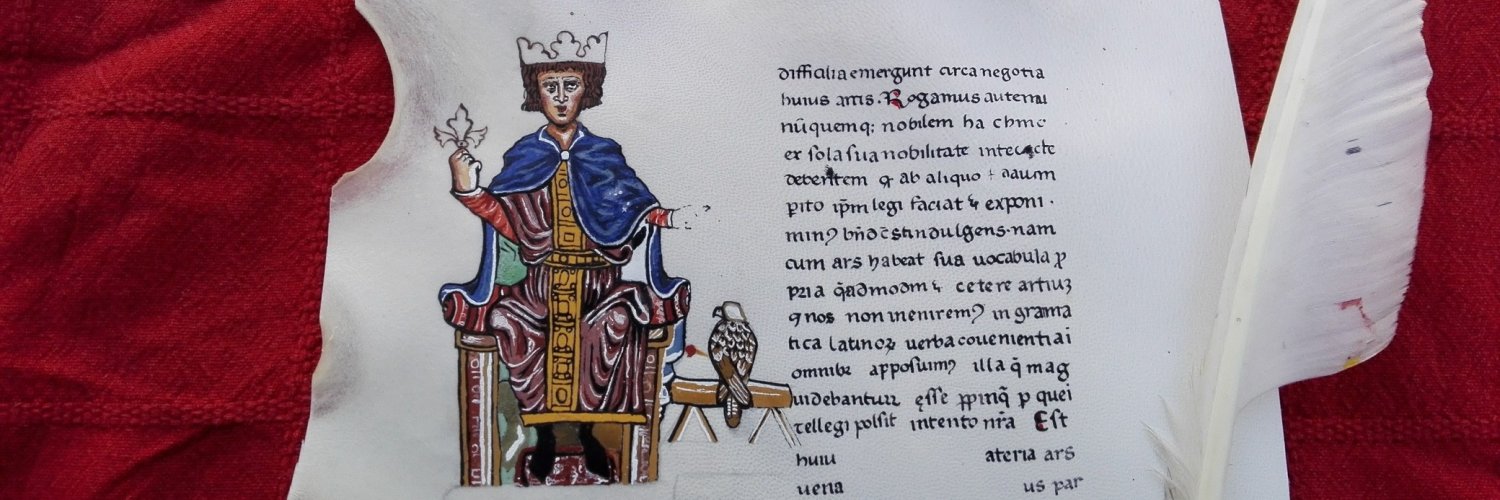 difficilia emergunt circa negotia
huius artis. Rogamus autem
nūquemq; nobilem
ex sola sua nobilitate
ab aliquo
pito ip̄m legi faciat & exponi.
indulgens. nam
cum ars habeat sua uocabula ꝑ
pria q̄admodm cetere artiuꝫ
nos non in grama
tica latinoꝝ uerba couenienti ai
omnibꝫ apposuimꝰ illa q̄ mag
uidebantur ęsse ꝓpinq̄ ꝑ q uei
tellegi possit intento nr̄a Est
huiu ateria ars
uena us par